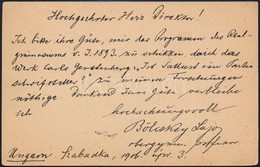 Hochgeehrter Herr Direktor!
Ich bitte ihre Güte, mir das Programm des Real-
gymnasiums v. J. 1893. zu schicken durch das
Werk Carls Gerstenberg „Ist Sallust ein Partei-
schriftsteller?“ zu meinen Forschungen
nöthig. Dankend Ihre Güte verbleibe
ich
hochachtungsvoll
Lajos
obergymn. Professor
Ungarn Szabadka, 1906. 3.